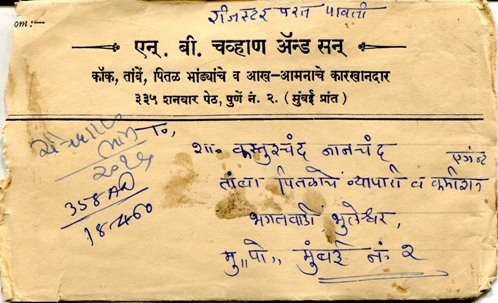 रजिस्टर परत पावती
om:—
एन. बी. चव्हाण अॅन्ड सन्
कॉंक, तांबें, पितळ भांड्यांचे व आख-आमनाचे कारखानदार
३३५ शनवार पेठ, पुणें नं. २. ( मुंबई प्रांत )
To,
शा० कस्तुरचंद नानचंद
तांबा पितळेचे व्यापारी व कमिशन एजंन्ट
भगतवाडी भुलेश्वर,
मु॥ पो॥ मुंबई नं. २
358 AD
18-4-60